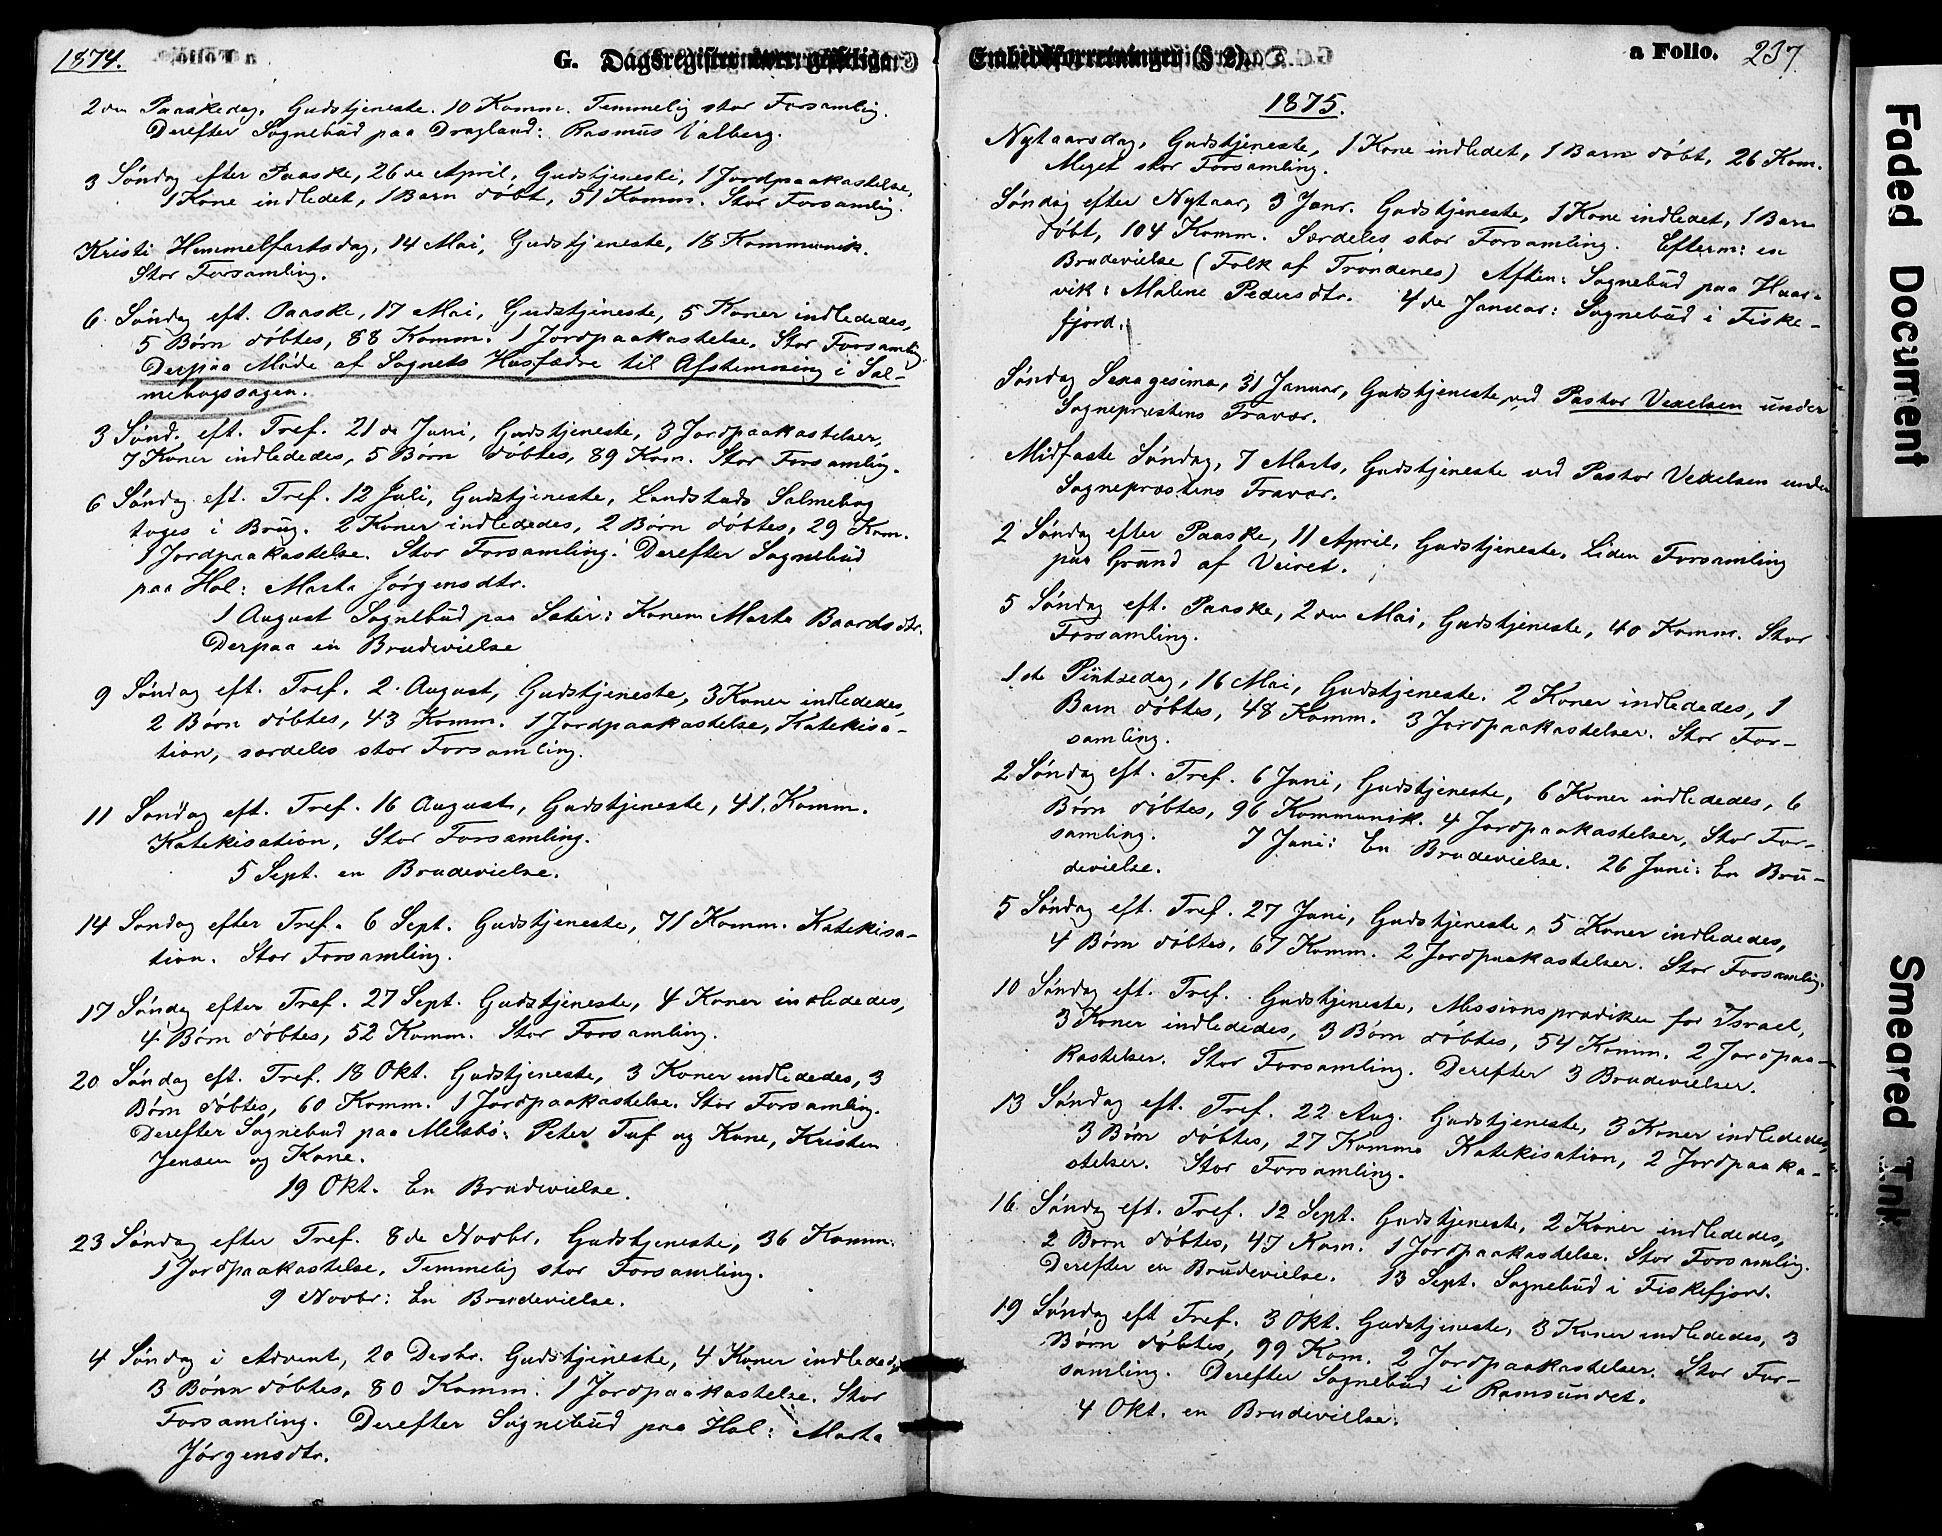 1874.
G. Dagsregister over geistlige
2den Paaskedag, Gudstjeneste. 10 Komm. Temmelig stor Forsamling.
Derefter Sognebud paa Dragland: Rasmus Valberg.
3 Søndag efter Paaske, 26de April, Gudstjeneste, 1 Jordpaakastelse,
1 Kone indledet, 1 Barn døbt, 51 Komm. Stor Forsamling.
Kristi Himmelfartsdag, 14 Mai, Gudstjeneste, 18 Kommunik.
Stor Forsamling.
6 Søndag eft. Paaske, 17 Mai, Gudstjeneste, 5 Koner indlededes,
5 Børn døbtes, 88 Komm. 1 Jordpaakastelse. Stor Forsamlig.
Derpaa Møde af Sognets Husfædre til Afstemning i Sal-
mebogssagen.
3 Sønd. eft. Tref. 21de Juni, Gudstjeneste, 3 Jordpaakastelser,
7 Koner indlededes, 5 Børn døbtes, 89 Kom. Stor Forsamling.
6 Søndag eft. Tref. 12 Juli, Gudstjeneste, Landstads Salmebog
toges i Brug. 2 Koner indlededes, 2 Børn døbtes, 29 Kom.
1 Jordpaakastelse. Stor Forsamling. Derefter Sognebud
paa Hol: Marta Jørgensdtr.
1 August Sognebud paa Sæter: Konen Marta Baardsdtr.
Derpaa en Brudevielse
9 Søndag eft. Tref. 2. August, Gudstjeneste, 3 Koner indlededes,
2 Børn døbtes, 43 Komm. 1 Jordpaakastelse, Katekisa-
tion, særdeles stor Forsamling.
11 Søndag eft. Tref. 16 August, Gudstjeneste, 41. Komm.
Katekisation, Stor Forsamling.
5 Sept. en Brudevielse.
14 Søndag efter Tref. 6 Sept. Gudstjeneste, 71 Komm. Katekisa-
tion. Stor Forsamling.
17 Søndag efter Tref. 27 Sept. Gudstjeneste, 4 Koner indlededes,
4 Børn døbtes, 52 Komm. Stor Forsamling.
20 Søndag eft. Tref. 18 Okt. Gudstjeneste, 3 Koner indlededes, 3
Børn døbtes, 60 Komm. 1 Jordpaakastelse. Stor Forsamling.
Derefter Sognebud paa Melsbø: Peter Tuf og Kone, Kristen
Jensen og Kone.
19 Okt. En Brudevielse.
23 Søndag efter Tref. 8de Novbr. Gudstjeneste, 36 Komm.
1 Jordpaakastelse, Temmelig stor Forsamling.
9 Novbr: En Brudevielse.
4 Søndag i Advent, 20 Desbr. Gudstjeneste, 4 Koner indlededes
3 Børn døbtes, 80 Komm. 1 Jordpaakastelse. Stor
Forsamling. Derefter Sognebud paa Hol: Marta
Jørgensdtr.
Embedsforretninger (§ 2).
a Folio. 237.
1875.
Nytaarsdag, Gudstjeneste, 1 Kone indledet, 1 Barn døbt, 26 Kom.
Meget stor Forsamling.
Søndag efter Nytaar, 3 Janr. Gudstjeneste, 1 Kone indledet, 1 Barn
døbt, 104 Komm. Særdeles stor Forsamling. Efterm: en
Brudevielse (Folk af Trondenes) Aften: Sognebud paa Haar-
vik: Malene Pedersdtr. 4de Januar: Sognebud i Fiske-
fjord.
Søndag Sexagesima, 31 Januar, Gudstjeneste ved Pastor Vexelsen under
Sogneprestens Fravær.
Midfaste Søndag, 7 Marts, Gudstjeneste ved Pastor Vexelsen under
Sogneprestens Fravær.
2 Søndag efter Paaske, 11 April, Gudstjeneste. Liden Forsamling
paa Grund af Veiret.
5 Søndag eft. Paaske, 2den Mai, Gudstjeneste, 40 Komm. Stor
Forsamling.
1ste Pintsedag, 16 Mai, Gudstjeneste. 2 Koner indlededes, 1
Barn døbtes, 48 Komm. 3 Jordpaakastelser. Stor For-
samling.
2 Søndag eft. Tref. 6 Juni, Gudstjeneste, 6 Koner indlededes, 6
Børn døbtes, 96 Kommunik. 4 Jordpaakastelser, Stor For-
samling. 7 Juni: En Brudevielse. 26 Juni: En Bru-
devielse.
5 Søndag eft. Tref. 27 Juni, Gudstjeneste, 5 Koner indlededes,
4 Børn døbtes, 67 Komm. 2 Jordpaakastelser. Stor Forsamling.
10 Søndag eft. Tref. Gudstjeneste, Missionspræken for Israel,
3 Koner indlededes, 3 Børn døbtes, 54 Komm. 2 Jordpaa-
kastelser. Stor Forsamling. Derefter 3 Brudevielser.
13 Søndag eft. Tref. 22 Aug. Gudstjeneste, 3 Koner indlededes,
3 Børn døbtes, 27 Komm. Katekisation, 2 Jordpaaka-
stelser. Stor Forsamling.
16 Søndag eft. Tref. 12 Sept. Gudstjeneste, 2 Koner indlededes,
2 Børn døbtes, 47 Kom. 1 Jordpaakastelse. Stor Forsamling.
Derefter en Brudevielse. 13 Sept. Sognebud i Fiskefjord.
19 Søndag eft Tref. 3 Okt. Gudstjeneste, 3 Koner indlededes, 3
Børn døbtes, 99 Kom. 2 Jordpaakastelser. Stor For-
samling. Derefter Sognebud i Ramsundet.
4 Okt. en Brudevielse.
Faded Document
Smeared Ink